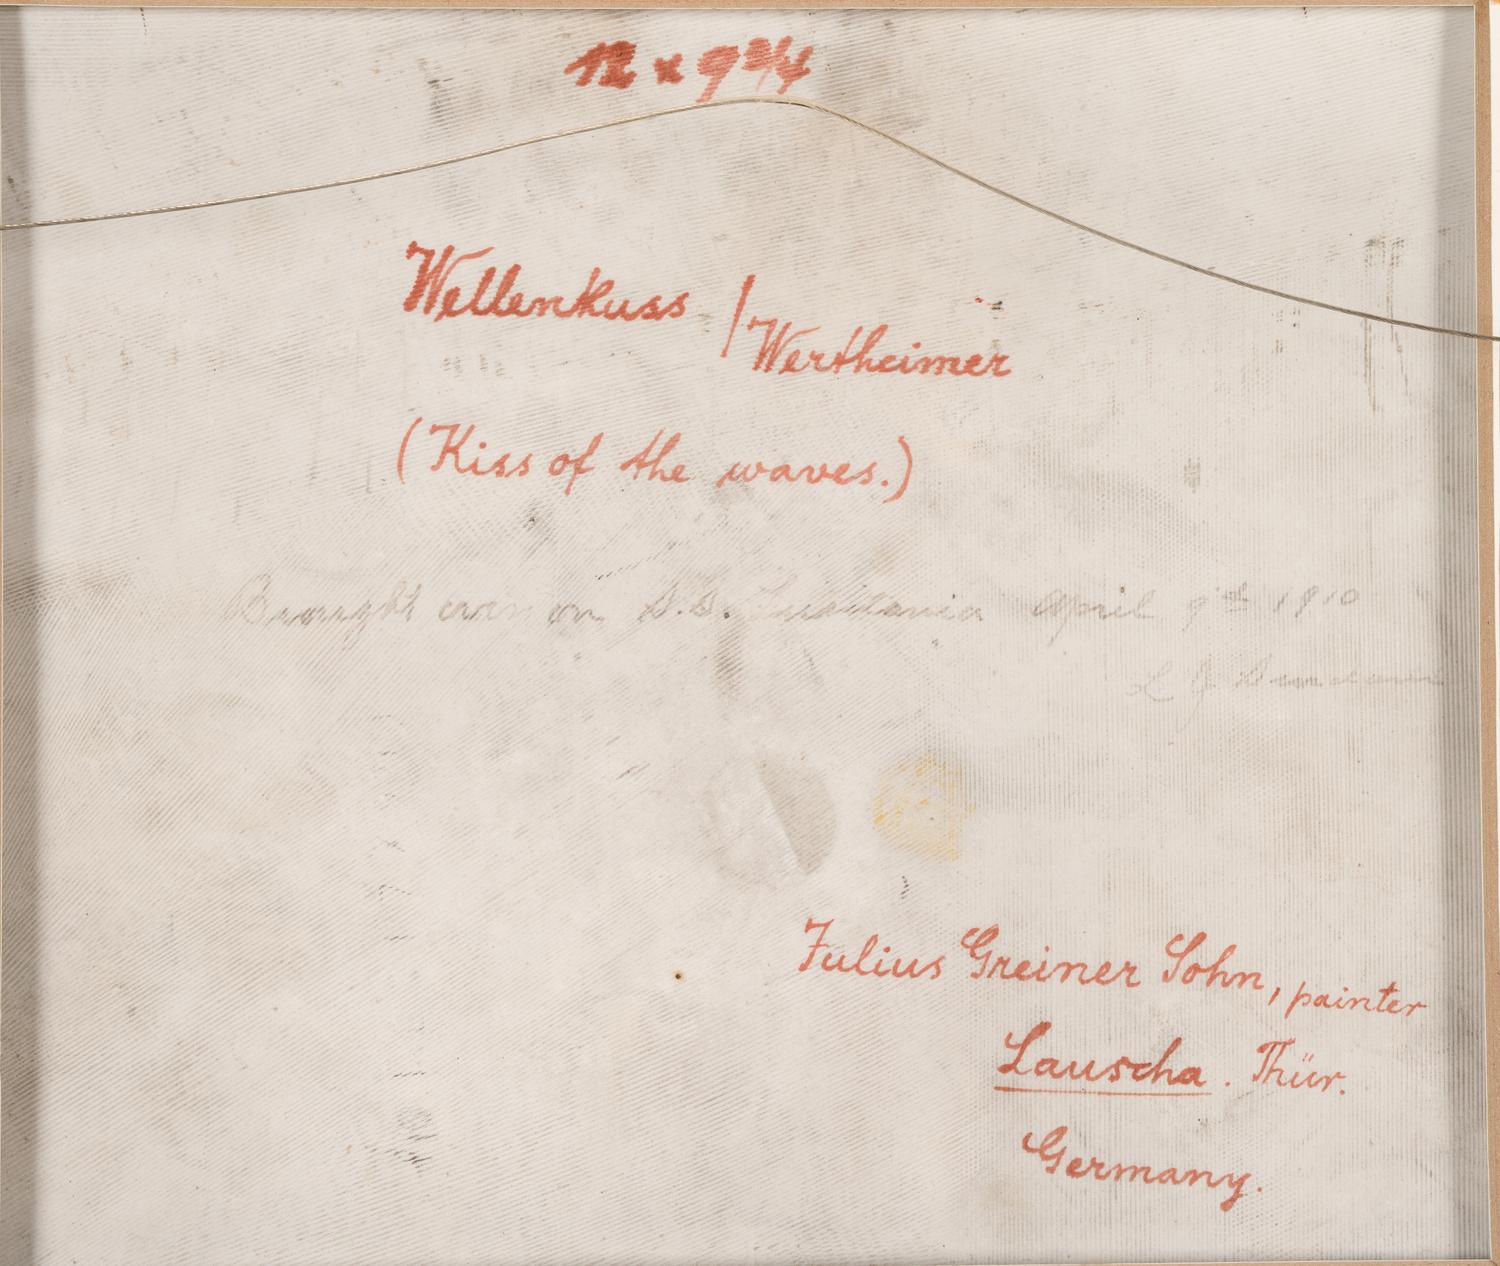 12 x 9 3/4
Wellenkuss / Wertheimer
(Kiss of the waves.)
Brought over on S.S. Lusitania April 9th 1910
L J
Julius Greiner Sohn, painter
Lauscha. Thür.
Germany.